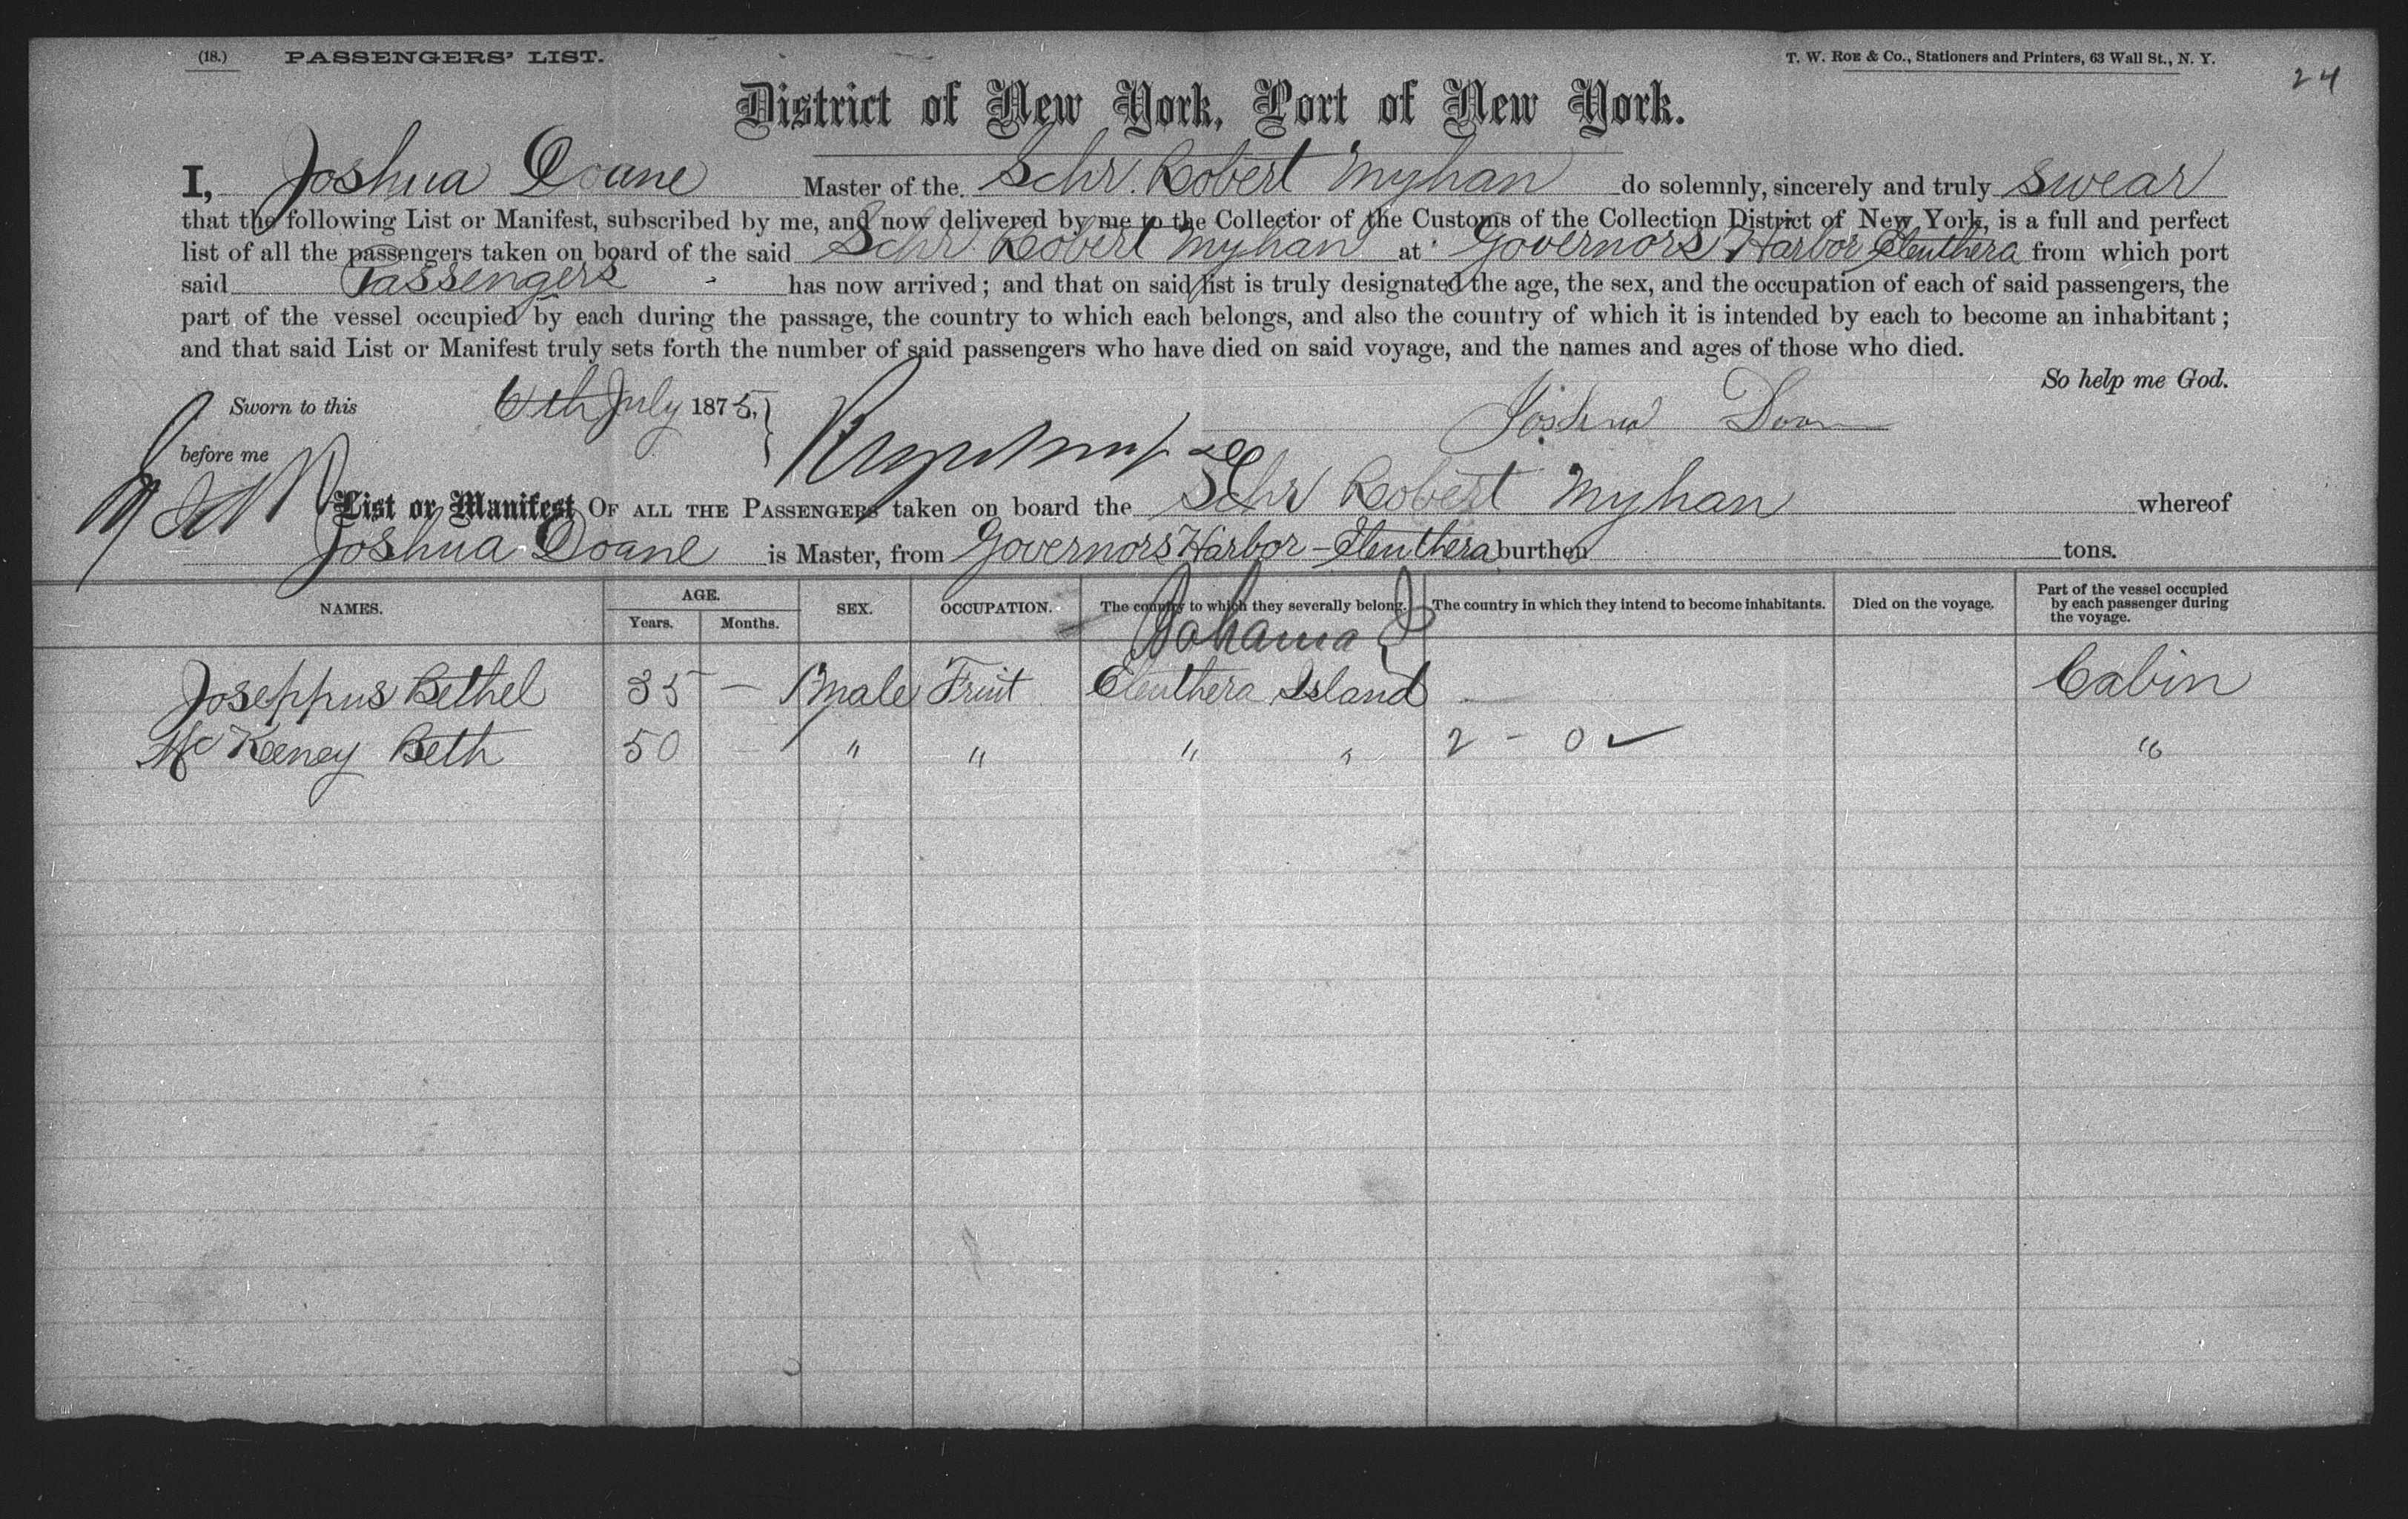 (18.) PASSENGERS' LIST.
T. W. ROE & Co., Stationers and Printers, 63 Wall St., N. Y.
24
District of New York, Port of New York.
I, Joshua Doane Master of the Schr. Robert Myhan do solemnly, sincerely and truly swear
that the following List or Manifest, subscribed by me, and now delivered by me to the Collector of the Customs of the Collection District of New York, is a full and perfect
list of all the passengers taken on board of the said Schr Robert Myhan at Governors Harbor Eleuthera from which port
said Passengers has now arrived; and that on said list is truly designated the age, the sex, and the occupation of each of said passengers, the
part of the vessel occupied by each during the passage, the country to which each belongs, and also the country of which it is intended by each to become an inhabitant;
and that said List or Manifest truly sets forth the number of said passengers who have died on said voyage, and the names and ages of those who died.
So help me God.
Sworn to this 6th July 1875,
Joshua Doan
before me
List or Manifest OF ALL THE PASSENGERS taken on board the Schr Robert Myhan whereof
Joshua Doane is Master, from Governors Harbor - Eleuthera burthen tons.
NAMES. AGE. Years. Months. SEX. OCCUPATION. The country to which they severally belong. The country in which they intend to become inhabitants. Died on the voyage. Part of the vessel occupied by each passenger during the voyage.
Bahama I
Joseppus Bethel 35 — Male Fruit Eleuthera Island — Cabin
McKeeney Beth 50 — " " " " 2 - 0 ✓ "